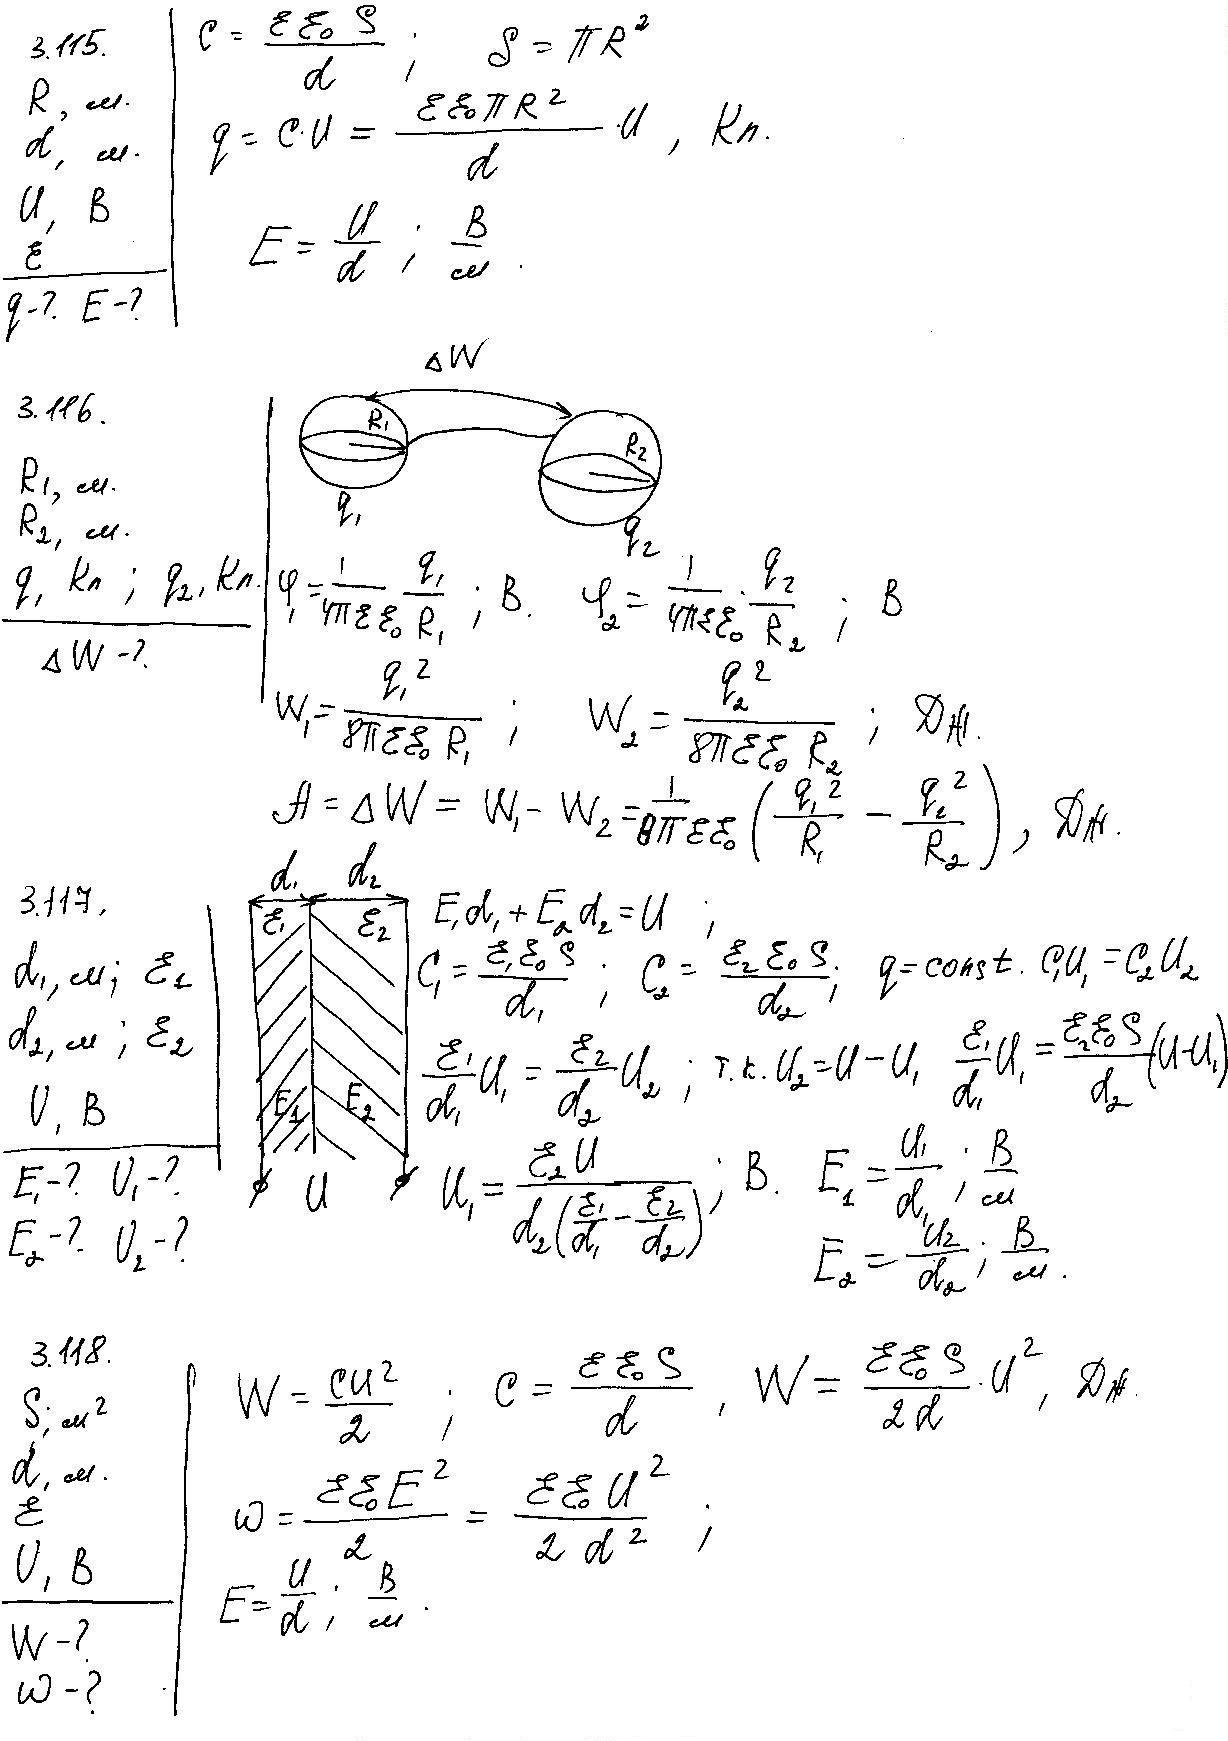 3.115.
R, м.
d, м.
U, В
ε
q-? E-?
C = εε₀S/d ; S = πR²
q = C·U = εε₀πR²/d ·U, Кл.
E = U/d ; В/м.
3.116.
R₁, м.
R₂, м.
q, Кл ; q₂, Кл.
ΔW-?
ΔW
R₁ R₂
q₁ q₂
φ₁ = 1/4πεε₀ q₁/R₁ ; В. φ₂ = 1/4πεε₀ · q₂/R₂ ; В
W₁ = q₁²/8πεε₀R₁ ; W₂ = q₂²/8πεε₀R₂ ; Дж.
A = ΔW = W₁ - W₂ = 1/8πεε₀ (q₁²/R₁ - q₂²/R₂), Дж.
3.117.
d₁, м; ε₁
d₂, м ; ε₂
U, В
E₁-? U₁-?
E₂-? U₂-?
d₁ d₂
ε₁ ε₂
E₁ E₂
U
E₁d₁ + E₂d₂ = U ;
C₁ = ε₁ε₀S/d₁ ; C₂ = ε₂ε₀S/d₂ ; q = const. C₁U₁ = C₂U₂
ε₁/d₁ U₁ = ε₂/d₂ U₂ ; т.к. U₂ = U - U₁ ε₁/d₁ U₁ = ε₂ε₀S/d₂ (U-U₁)
U₁ = ε₂U/d₂(ε₁/d₁ - ε₂/d₂) ; В. E₁ = U₁/d₁ ; В/м
E₂ = U₂/d₂ ; В/м.
3.118.
S; м²
d, м.
ε
U, В
W-?
ω-?
W = CU²/2 ; C = εε₀S/d , W = εε₀S/2d ·U², Дж.
ω = εε₀E²/2 = εε₀U²/2d² ;
E = U/d ; В/м.